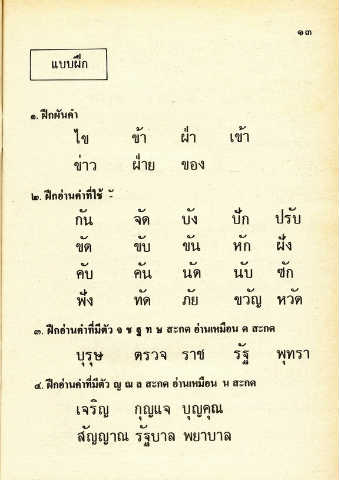 ๑๓
แบบฝึก
๑. ฝึกผันคำ
ไข ข้า ฝ่า เข้า
ข่าว ฝ่าย ของ
๒. ฝึกอ่านคำที่ใช้ ั
กัน จัด บัง ปัก ปรับ
ขัด ขับ ขัน หัก ฝัง
คับ คัน นัด นับ ซัก
ฟัง ทัด ภัย ขวัญ หวัด
๓. ฝึกอ่านคำที่มีตัว จ ช ฐ ท ษ สะกด อ่านเหมือน ด สะกด
บุรุษ ตรวจ ราช รัฐ พุทรา
๔. ฝึกอ่านคำที่มีตัว ญ ณ ล สะกด อ่านเหมือน น สะกด
เจริญ กุญแจ บุญคุณ
สัญญาณ รัฐบาล พยาบาล